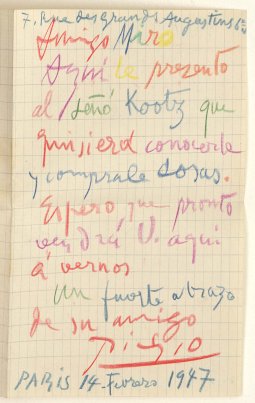 7, Rue des Grands Augustins 6e
Amigo Miro
Aqui le presento
al señó Kootz que
quisiera conocerle
y comprale cosas.
Espero, que pronto
vendrá V. aqui
á vernos
un fuerte abrazo
de su amigo
Picasso
PARIS 14 Febrero 1947